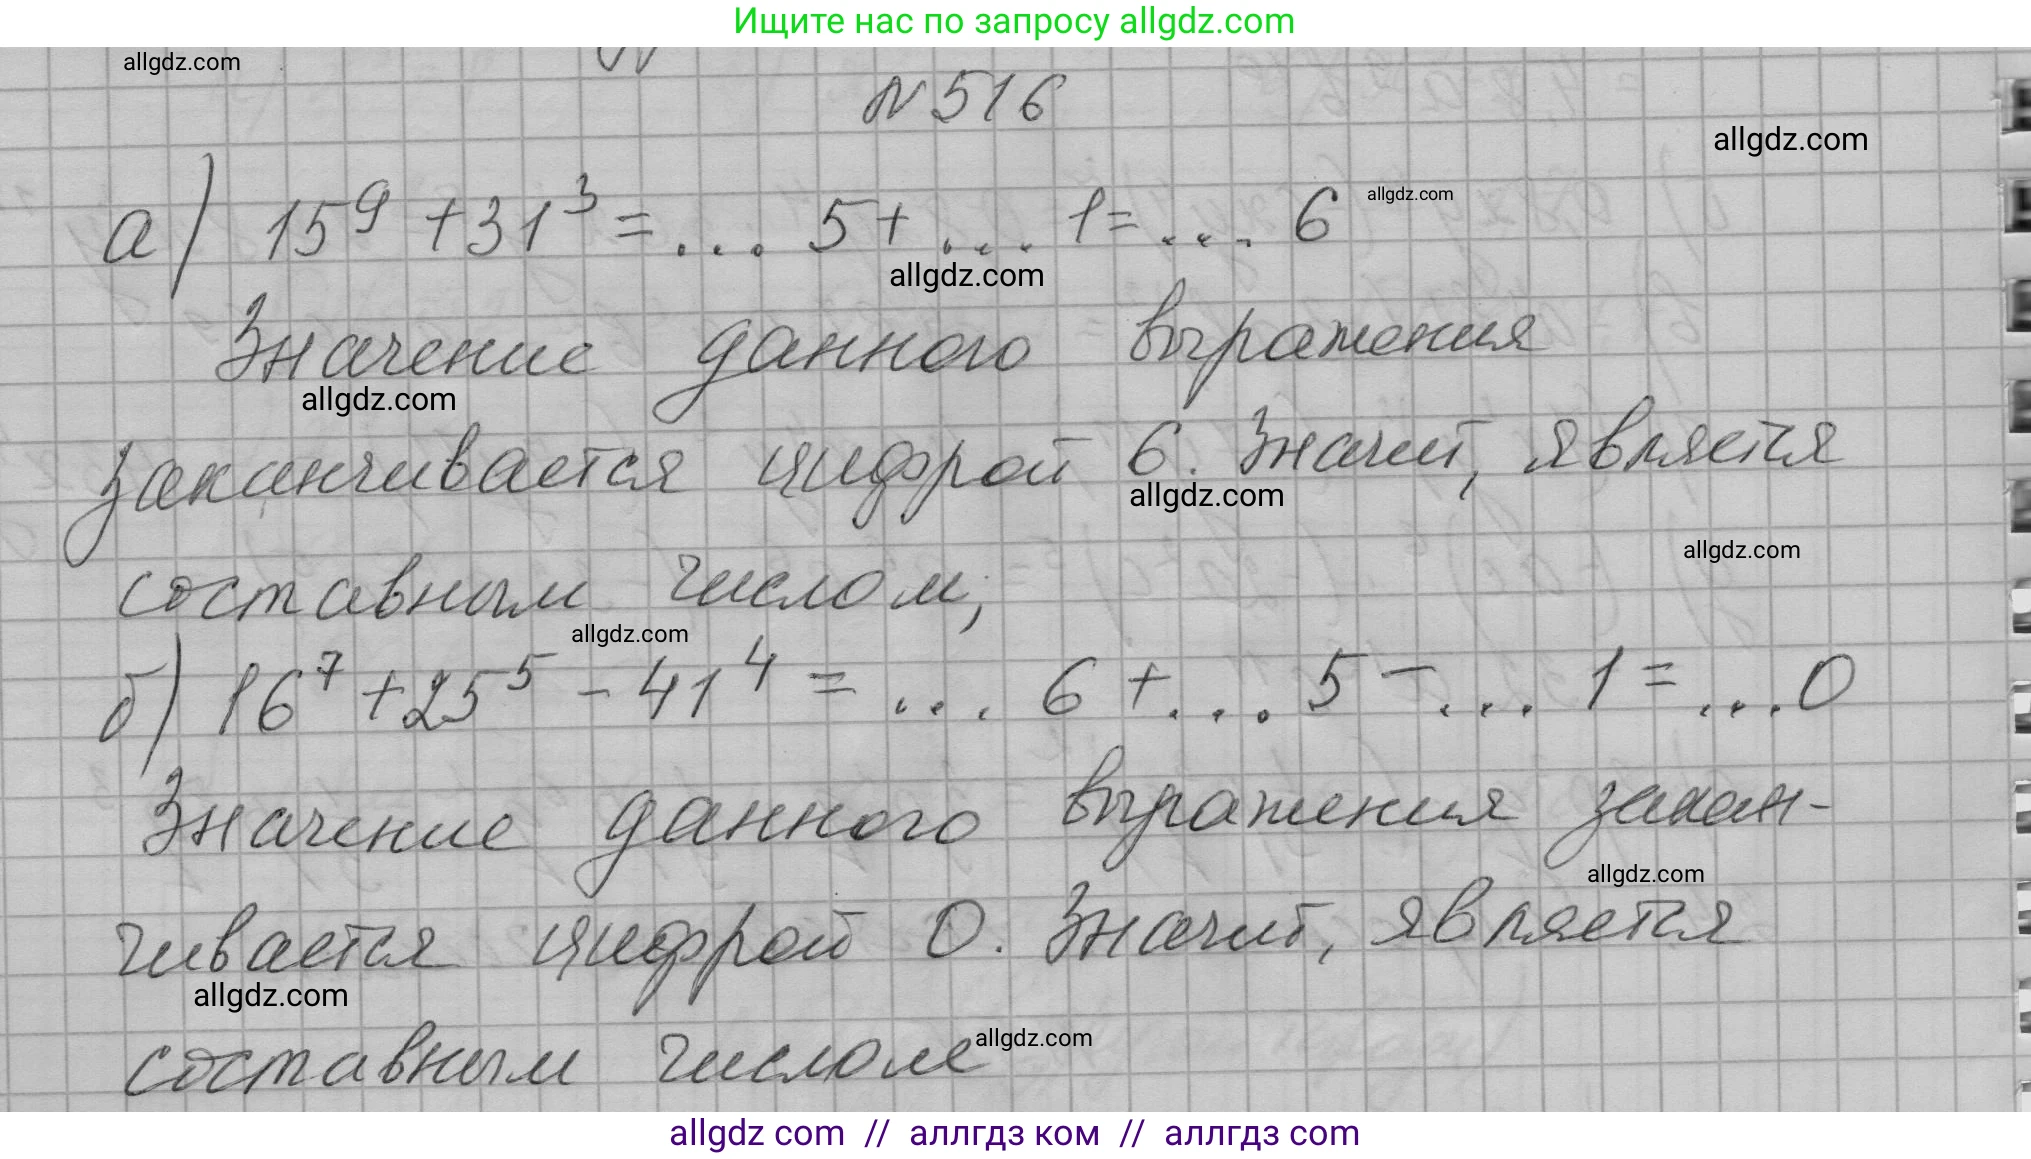 Ищите нас по запросу allgdz.com
allgdz.com
N 516
allgdz.com
а) 15⁹ + 31³ = ... 5 + ... 1 = ... 6
allgdz.com
allgdz.com
Значение данного выражения
allgdz.com
заканчивается цифрой 6. Значит, является
allgdz.com
allgdz.com
составным числом;
allgdz.com
б) 16⁷ + 25⁵ − 41⁴ = ... 6 + ... 5 − ... 1 = ... 0
Значение данного выражения закан-
allgdz.com
чивается цифрой 0. Значит, является
allgdz.com
составным числом
allgdz.com
allgdz com // аллгдз ком // аллгдз com